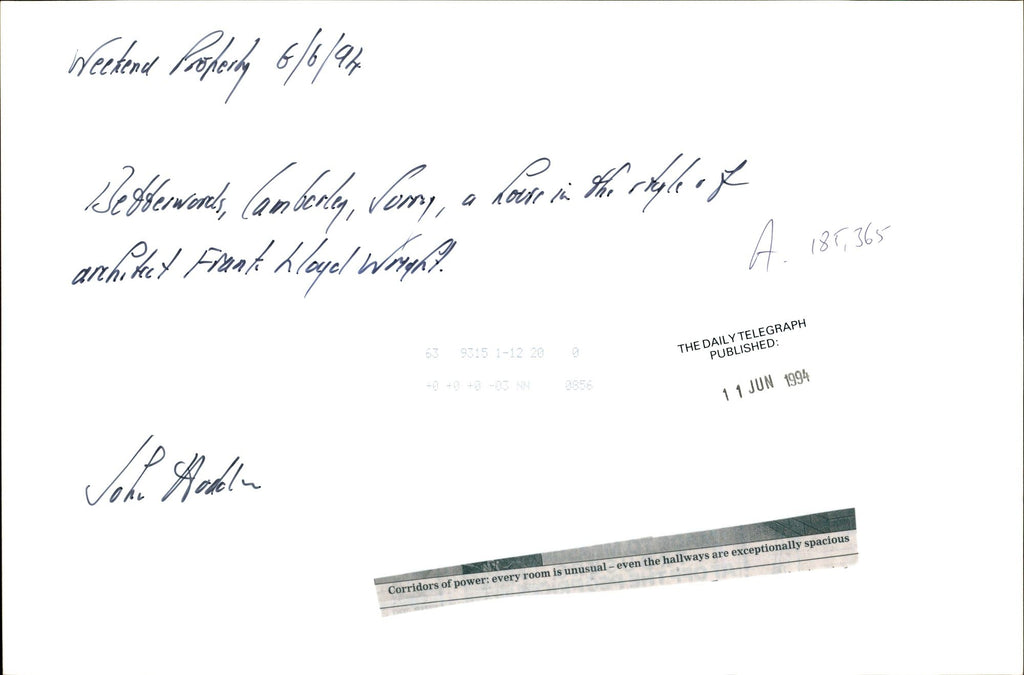 Weekend Property 6/6/94
Betterwords, Camberley, Surrey, a house in the style of
architect Frank Lloyd Wright.
A. 185,365
63 9315 1-12 20 0
+0 +0 +0 -03 NN 0856
THE DAILY TELEGRAPH
PUBLISHED:
11 JUN 1994
John
Corridors of power: every room is unusual – even the hallways are exceptionally spacious